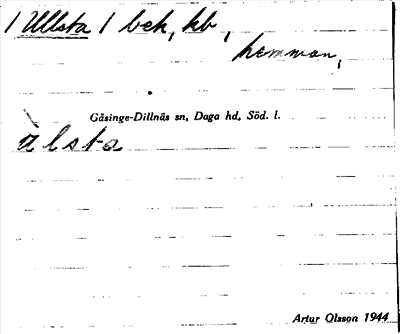 / Ullsta / bek, kb,
hemman,
Gåsinge-Dillnäs sn, Daga hd, Söd. l.
ùlsta
Artur Olsson 1944